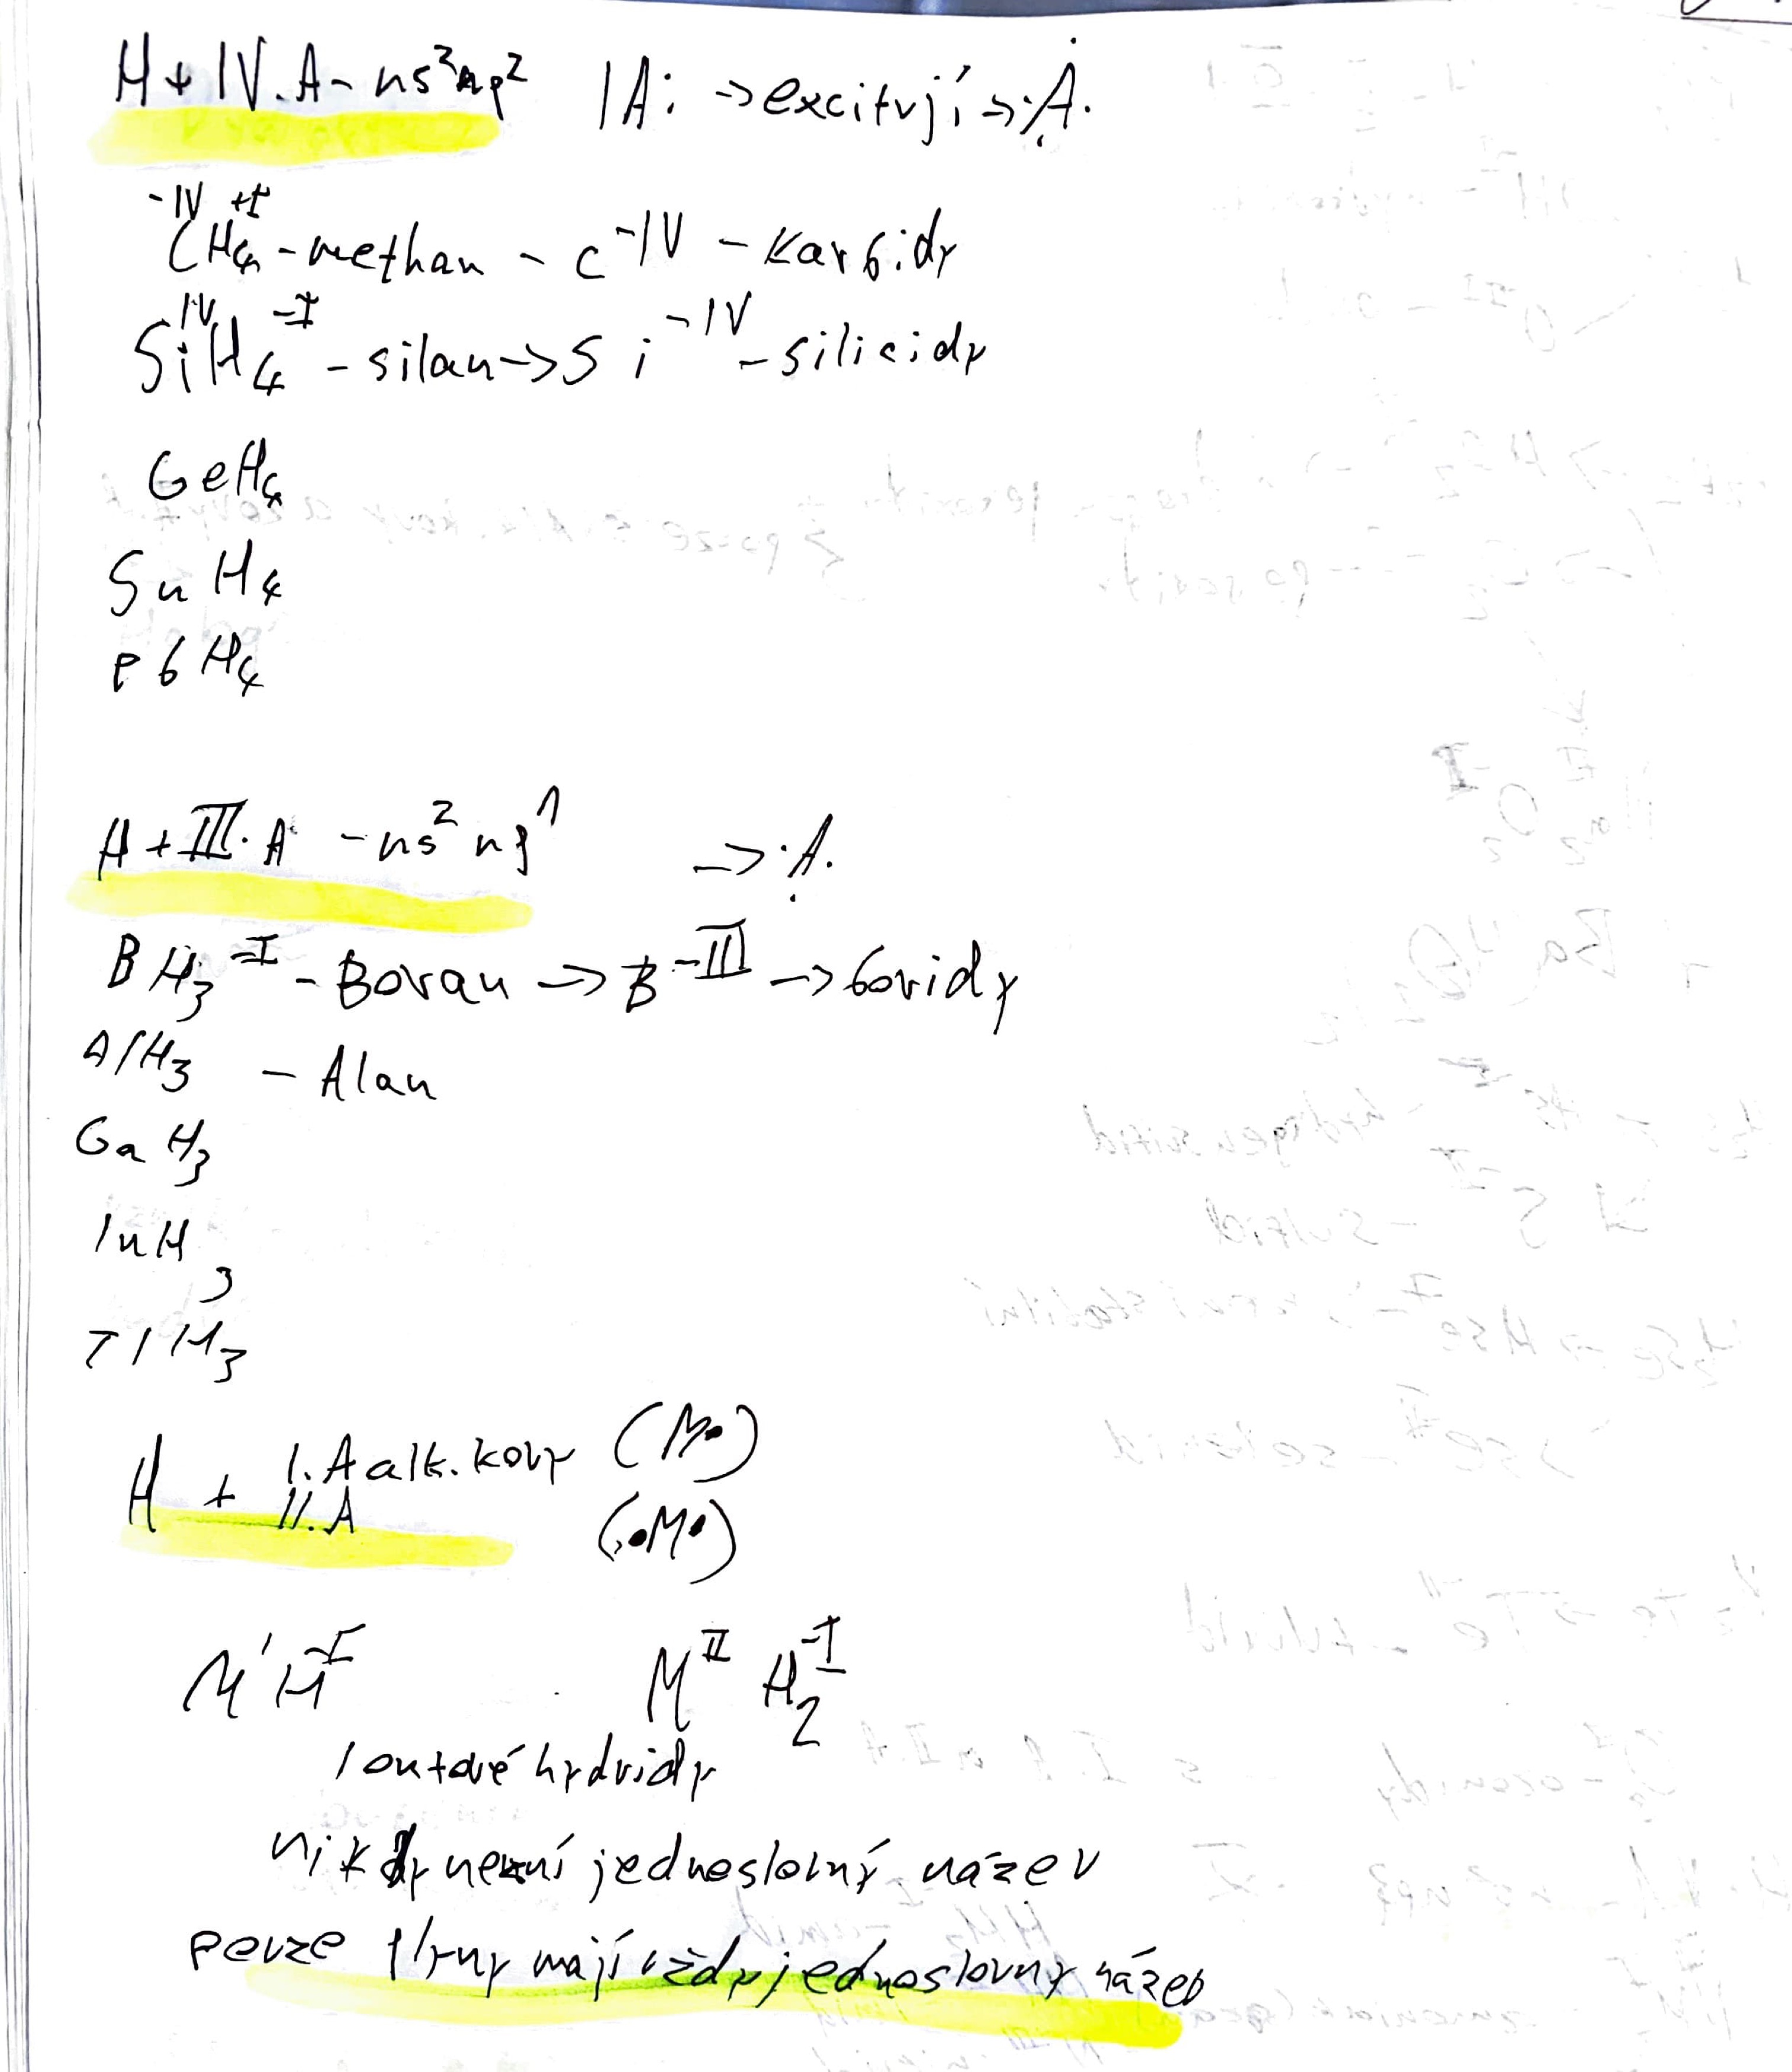 H + IV.A - ns²np² |A: -> excitují -> ·Ȧ·
-IV +I
CH₄ - methan - C^-IV - Karbidy
IV -I
SiH₄ - silan -> Si^-IV - silicidy
GeH₄
SnH₄
PbH₄
H + III.A - ns² np¹ -> ·A·
BH₃^-I - Boran -> B^-III -> boridy
AlH₃ - Alan
GaH₃
InH₃
TlH₃
H + I.A alk. kovy (M•)
II.A (•M•)
M^I H^-I M^II H₂^-I
Iontové hydridy
nikdy není jednoslovný název
pouze plyny mají vždy jednoslovný název